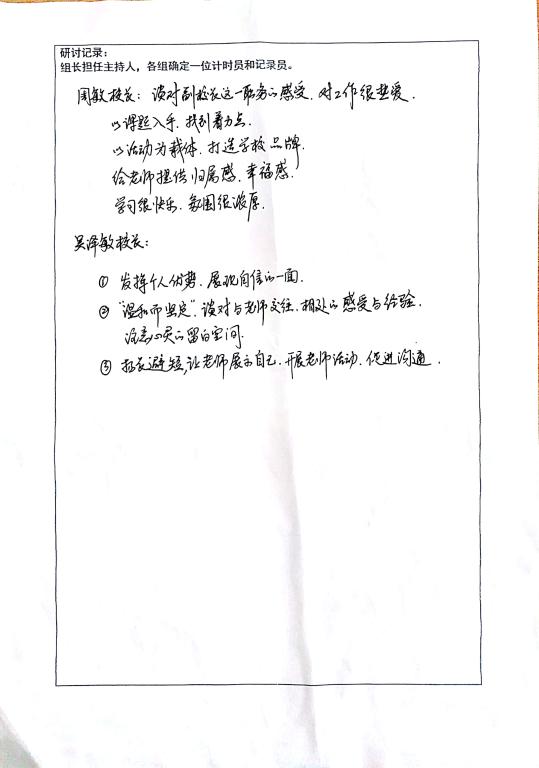 研讨记录：
组长担任主持人，各组确定一位计时员和记录员。
周敏校长：谈对副校长这一职务的感受，对工作很热爱．
以课题入手，找到着力点．
以活动为载体，打造学校品牌．
给老师提供归属感，幸福感．
学习很快乐，氛围很浓厚．
吴泽敏校长：
① 发挥个人优势，展现自信的一面．
② “温和而坚定”，谈对与老师交往，相处的感受与经验．
注意心灵的留白空间．
③ 扬长避短，让老师展示自己，开展老师活动，促进沟通．